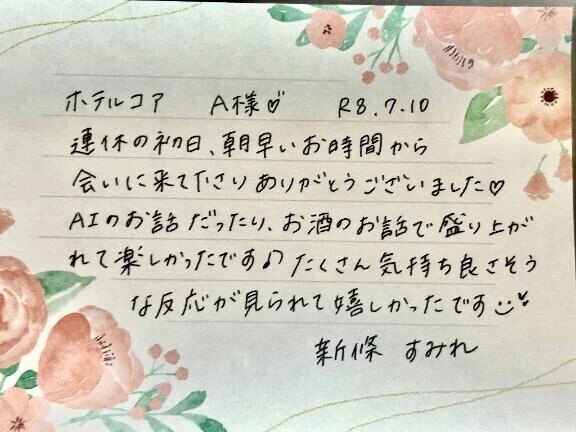 ホテルコア A様♡ R8.7.10
連休の初日、朝早いお時間から
会いに来て下さりありがとうございました♡
AIのお話だったり、お酒のお話で盛り上が
れて楽しかったです♪たくさん気持ち良さそう
な反応が見られて嬉しかったです☺♥
新條 すみれ